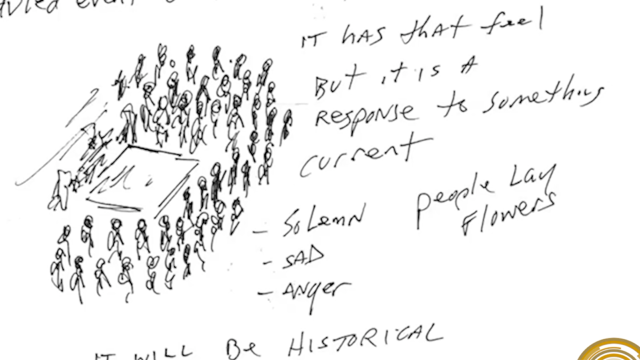 event
IT HAS THAT feel
BUT it is A
RESPONSE to something
current
PEOPLE LAY
FLOWERS
- SOLEMN
- SAD
- ANGER
IT WILL BE HISTORICAL